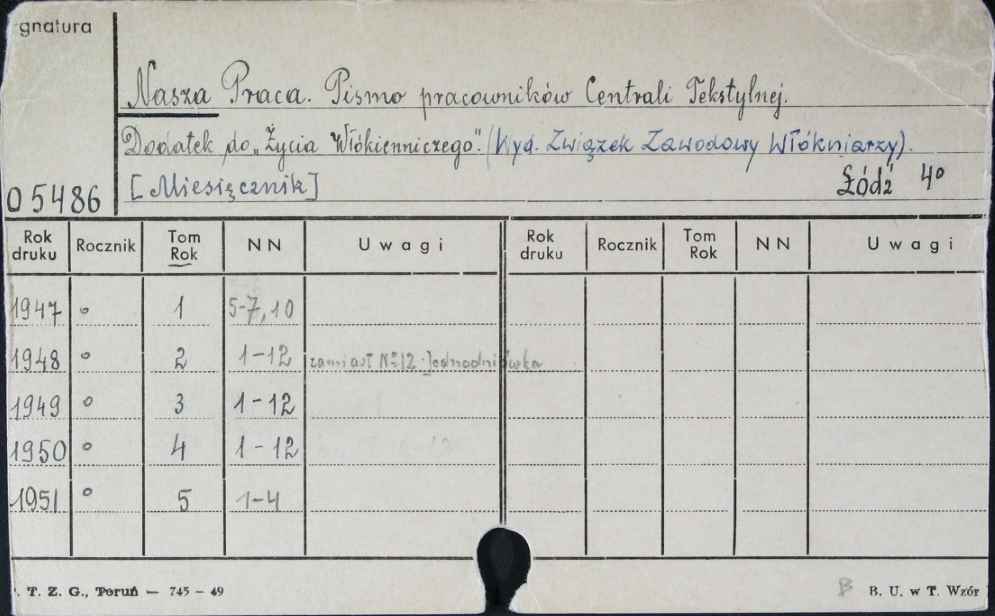 gnatura
Nasza Praca. Pismo pracowników Centrali Tekstylnej.
Dodatek do „Życia Włókienniczego." (Wyd. Związek Zawodowy Włókniarzy).
05486 [Miesięcznik] Łódź 4°
Rok druku Rocznik Tom Rok NN Uwagi Rok druku Rocznik Tom Rok NN Uwagi
1947 ° 1 5-7, 10
1948 ° 2 1-12 zamiast № 12 Jednodniówka
1949 ° 3 1-12
1950 ° 4 1-12
1951 ° 5 1-4
. T. Z. G., Toruń — 745 - 49 B B. U. w T. Wzór